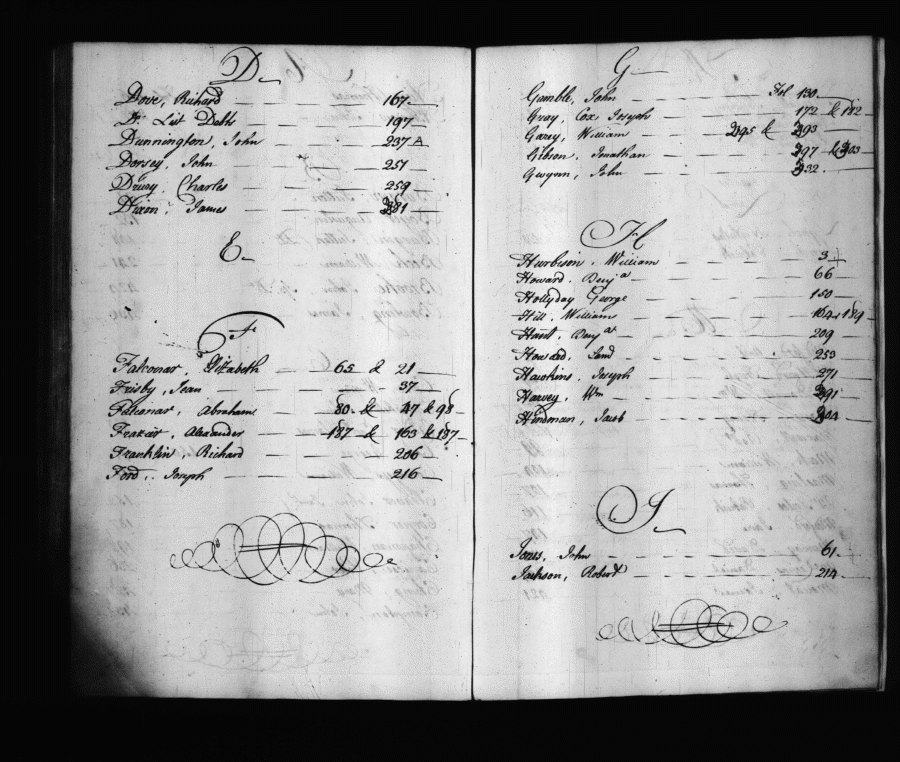 D
Dove, Richard 167
Dr. List Debts 197
Dunnington, John 237 A
Dorsey, John 251
Drury, Charles 259
Dixon, James 281
E
F
Falconar, Elizabeth 65 & 21
Frisby, Jean 37
Falconar, Abraham 80 & 47 & 98
Frazer, Alexander 187 & 163 & 187
Franklin, Richard 206
Ford, Joseph 216
G
Gamble, John Fol 130
Gray, Cox Joseph 172 & 182
Garey, William 295 & 293
Gibson, Jonathan 297 & 303
Gwynn, John 332
H
Harbison, William 3
Howard, Benja 66
Hollyday George 150
Hill, William 164 & 189
Hunt, Benja 209
Howard, 253
Hawkins, Joseph 271
Harvey, Wm 291
Hindman, Jacob 304
J
Jones, John 61
Jackson, Robert 214